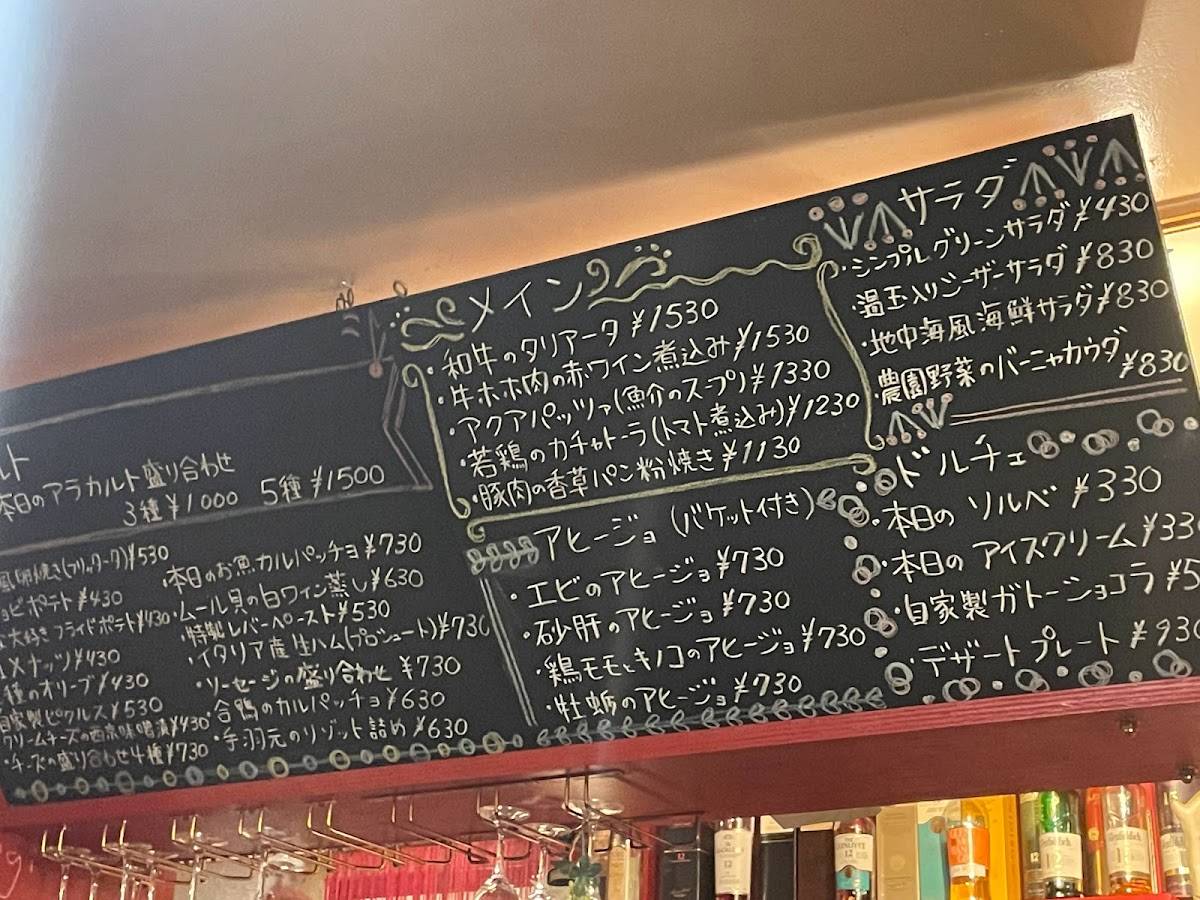 ルト
本日のアラカルト盛り合わせ
3種¥1000 5種¥1500
風卵焼き(フリッタータ)¥530
ョビポテト¥430
大好きフライドポテト¥430
Xナッツ¥430
種のオリーブ¥430
自家製ピクルス¥530
クリームチーズの西京味噌漬¥430
・チーズの盛り合わせ4種¥730
・本日のお魚カルパッチョ¥730
・ムール貝の白ワイン蒸し¥630
・特製レバーペースト¥530
・イタリア産生ハム(プロシュート)¥730
・ソーセージの盛り合わせ ¥730
・合鴨のカルパッチョ¥630
・手羽元のリゾット詰め¥630
メイン
・和牛のタリアータ¥1530
・牛ホホ肉の赤ワイン煮込み¥1530
・アクアパッツァ(魚介のスープ)¥1330
・若鶏のカチャトーラ(トマト煮込み)¥1230
・豚肉の香草パン粉焼き¥1130
アヒージョ(バケット付き)
・エビのアヒージョ¥730
・砂肝のアヒージョ¥730
・鶏モモとキノコのアヒージョ¥730
・牡蛎のアヒージョ¥730
サラダ
・シンプルグリーンサラダ¥430
・温玉入りシーザーサラダ¥830
・地中海風海鮮サラダ¥830
・農園野菜のバーニャカウダ
¥830
ドルチェ
・本日のソルベ ¥330
・本日のアイスクリーム¥33
・自家製ガトーショコラ¥5
・デザートプレート ¥930
12
12